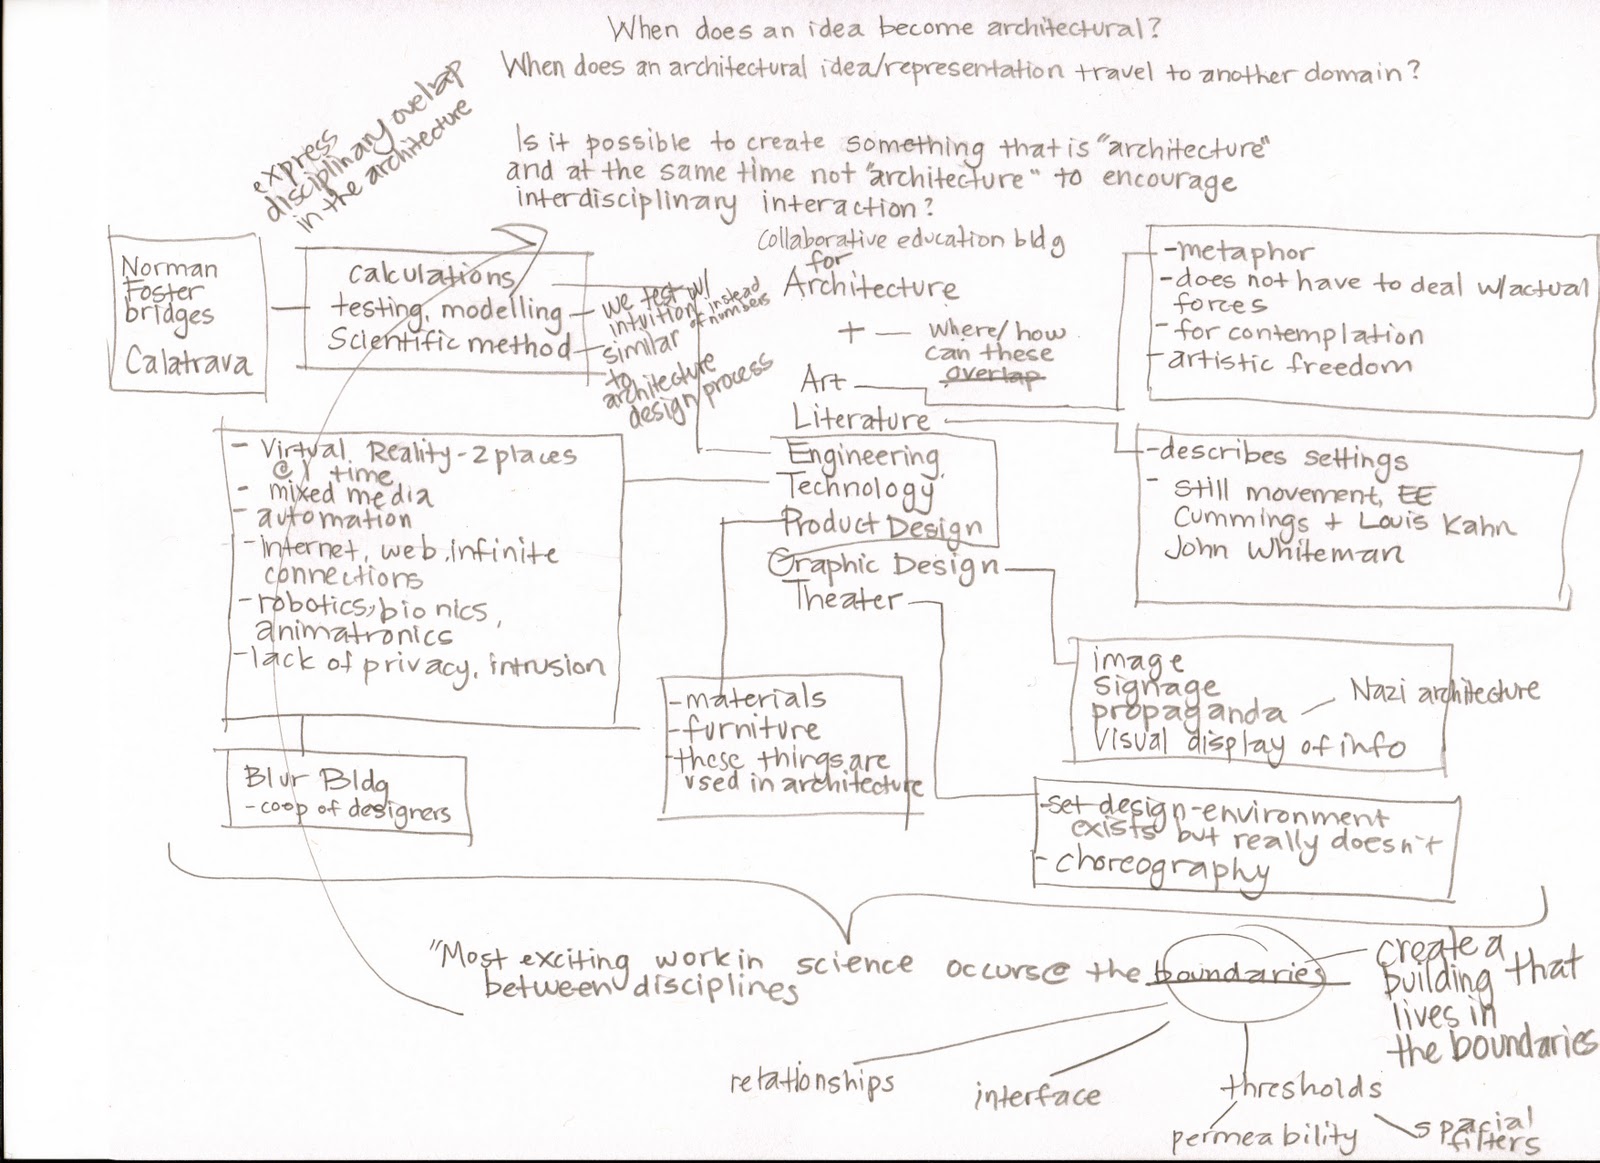 When does an idea become architectural?
When does an architectural idea/representation travel to another domain?
express
disciplinary overlap
in the architecture
Is it possible to create something that is "architecture"
and at the same time not "architecture" to encourage
interdisciplinary interaction?
Collaborative education bldg
for
Architecture
+ — where/how
can these
overlap
Art
Literature
Engineering
Technology
Product Design
Graphic Design
Theater
Norman
Foster
bridges
Calatrava
calculations
testing, modelling
Scientific method
we test w/
intuition instead
of numbers
similar
to
architecture
design process
-metaphor
-does not have to deal w/actual
forces
-for contemplation
-artistic freedom
-describes settings
- still movement, EE
Cummings + Louis Kahn
John Whiteman
- Virtual Reality-2 places
@ 1 time
- mixed media
- automation
-internet, web, infinite
connections
-robotics, bionics,
animatronics
-lack of privacy, intrusion
Blur Bldg
-coop of designers
-materials
-furniture
-these things are
used in architecture
image
signage
propaganda — Nazi architecture
visual display of info
-set design-environment
exists but really doesn't
- choreography
"Most exciting work in science occurs @ the boundaries
between disciplines
create a
building that
lives in
the boundaries
relationships
interface
thresholds
permeability
spacial
filters